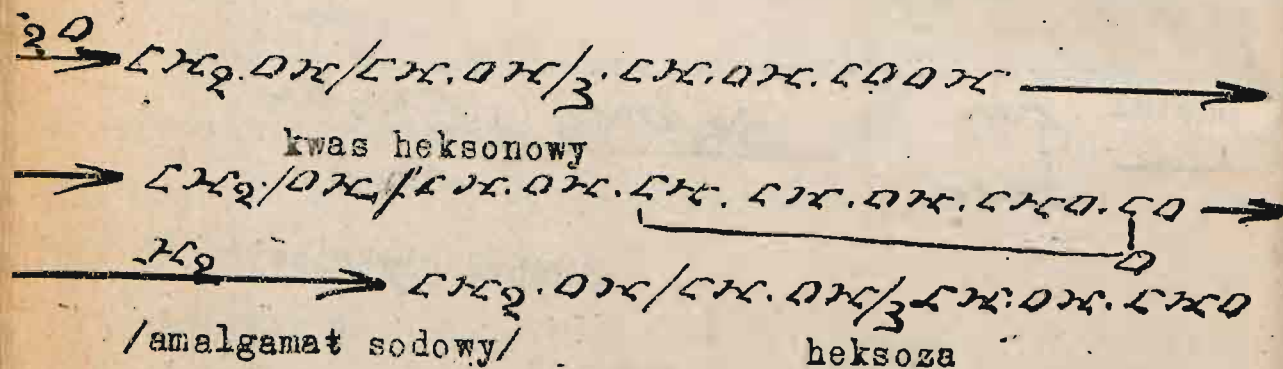 2O
→ CH₂.OH/CH.OH/₃.CH.OH.COOH →
kwas heksonowy
→ CH₂./OH/CH.OH.CH.CH.OH.CHO.CO →
O
H₂
→ CH₂.OH/CH.OH/₃CH.OH.CHO
/amalgamat sodowy/ heksoza